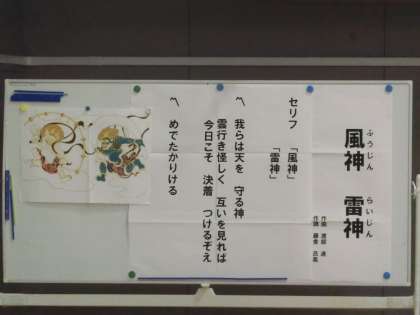 ふうじん らいじん
風神 雷神
セリフ 「風神」
「雷神」
〽 我らは天を 守る神
雲行き怪しく 互いを見れば
今日こそ 決着 つけるぞえ
〽 めでたかりける